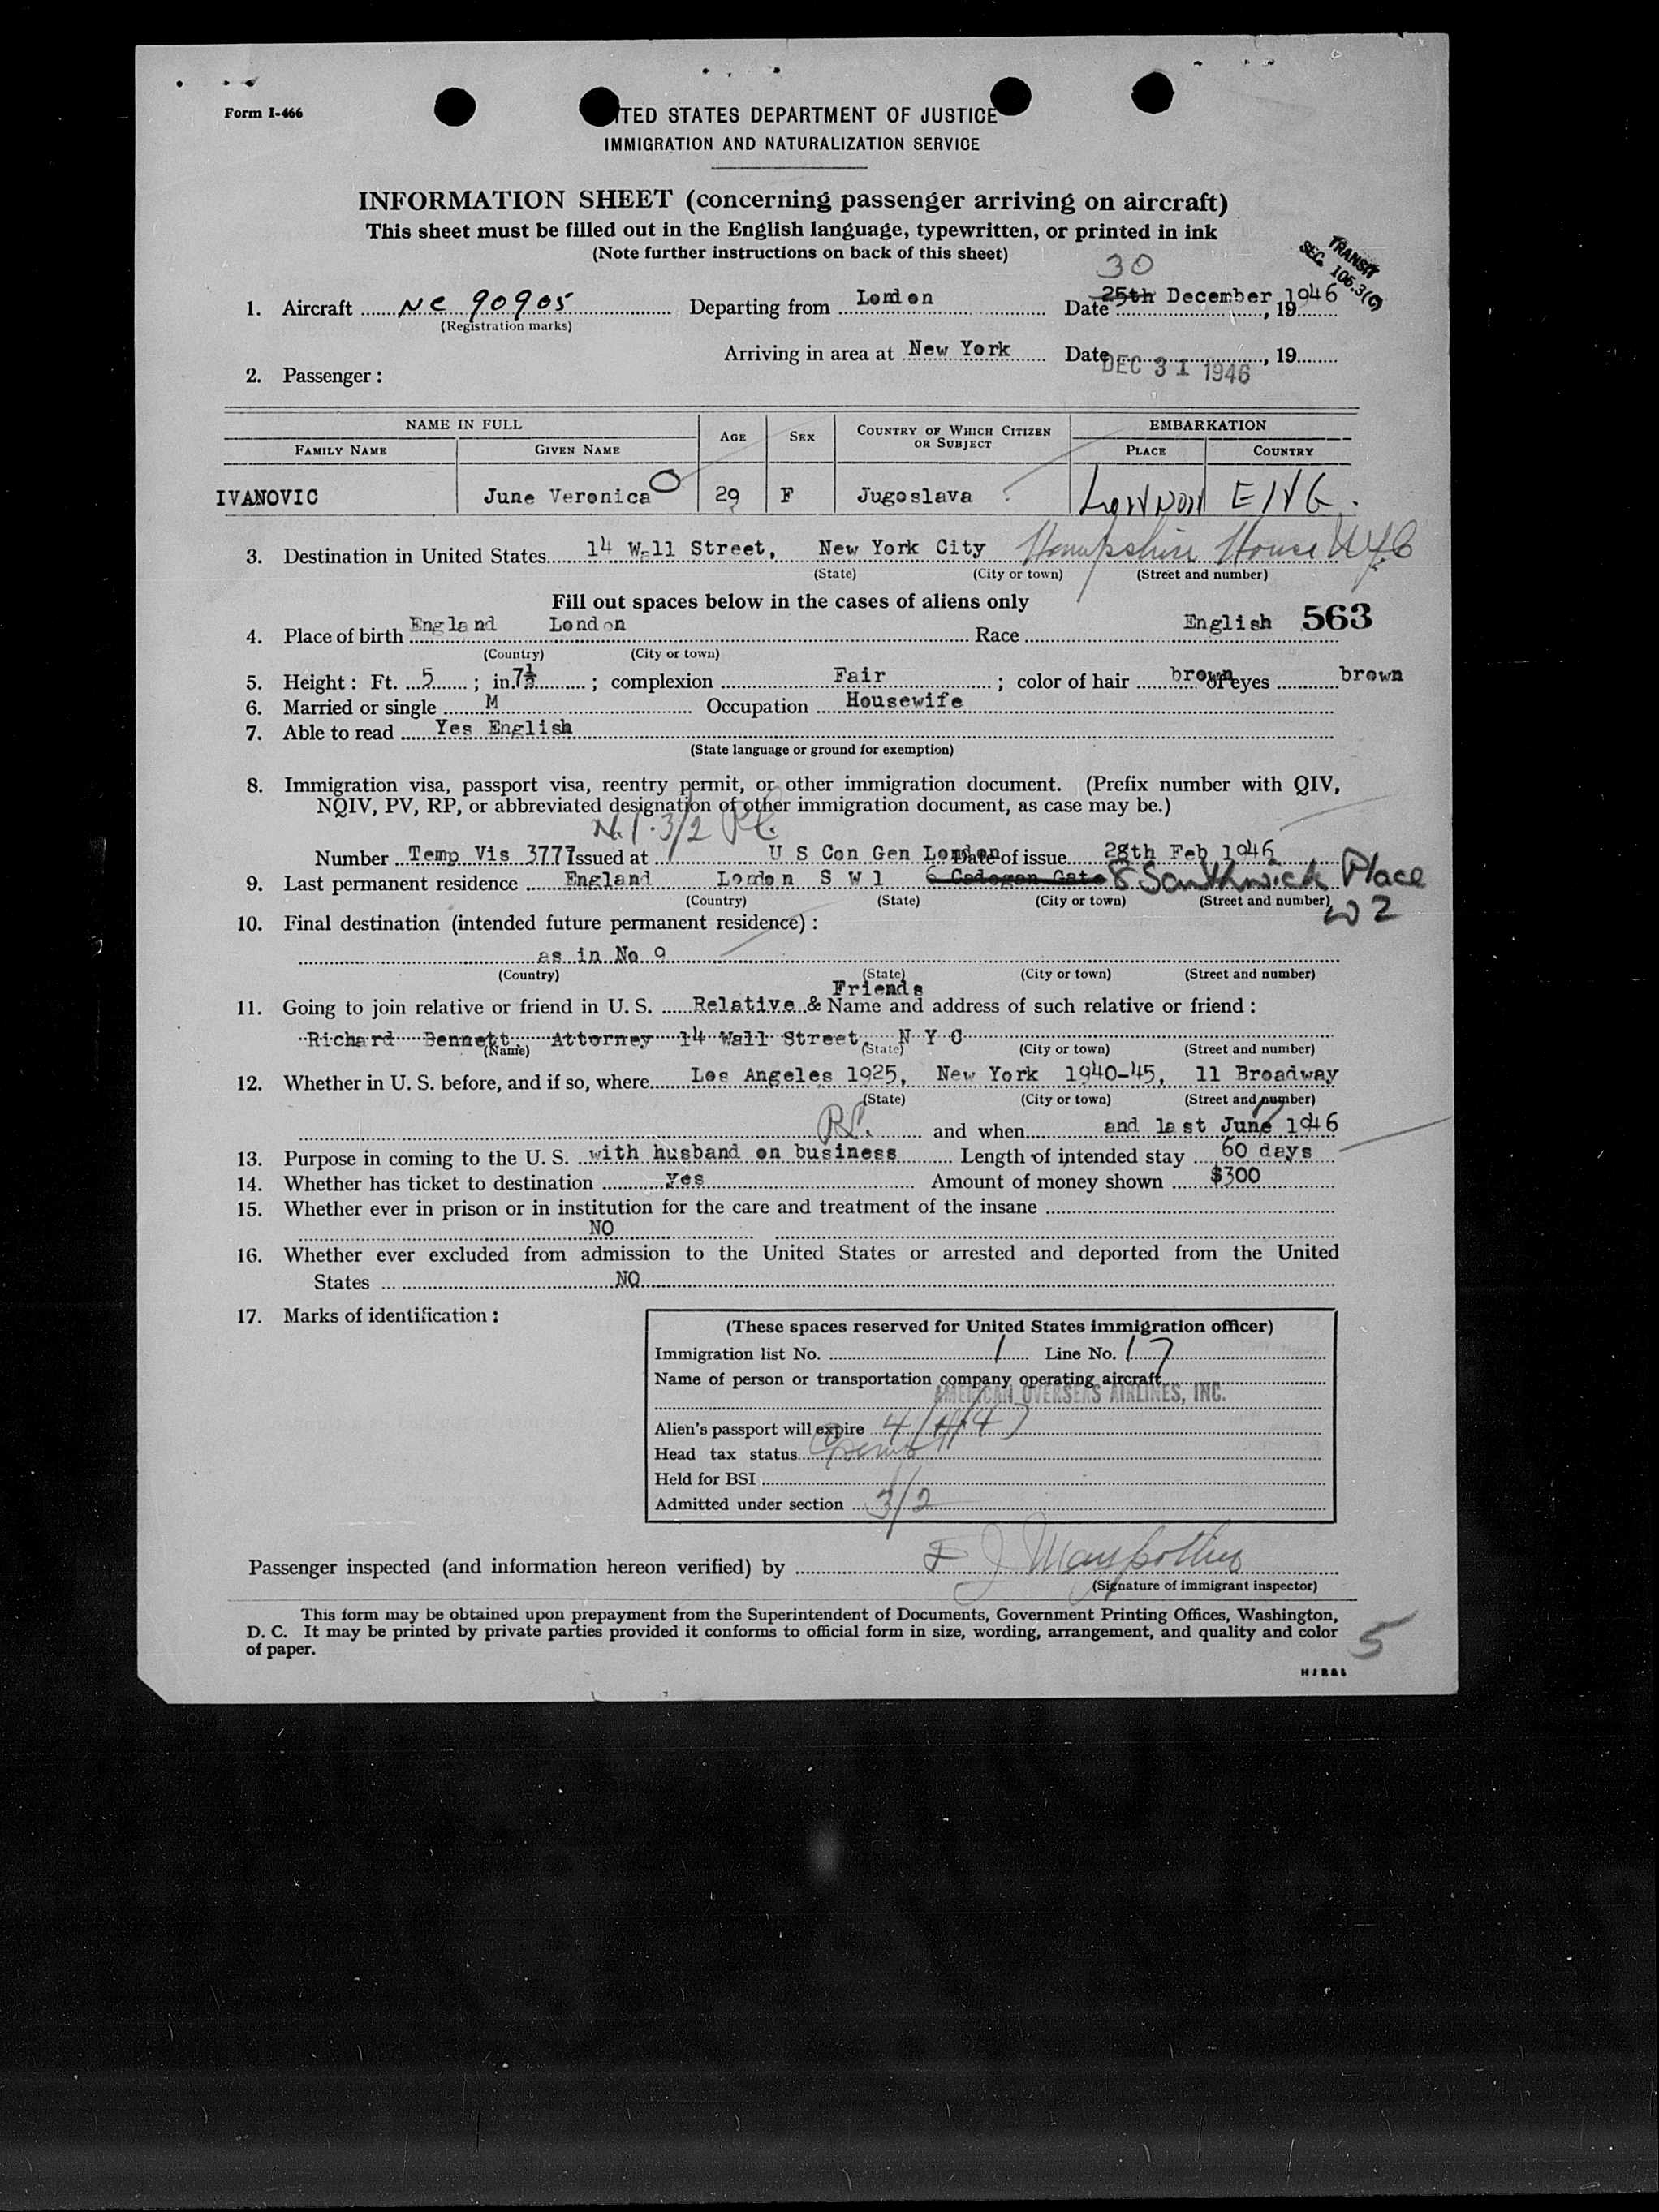 Form I-466
ITED STATES DEPARTMENT OF JUSTICE
IMMIGRATION AND NATURALIZATION SERVICE
INFORMATION SHEET (concerning passenger arriving on aircraft)
This sheet must be filled out in the English language, typewritten, or printed in ink
(Note further instructions on back of this sheet)
TRANSIT
SEC. 106.3(C)
30
1. Aircraft NC 90905 Departing from London Date 25th December 1946, 19
(Registration marks)
Arriving in area at New York Date DEC 31 1946, 19
2. Passenger:
NAME IN FULL AGE SEX COUNTRY OF WHICH CITIZEN OR SUBJECT EMBARKATION
FAMILY NAME GIVEN NAME PLACE COUNTRY
IVANOVIC June Veronica 29 F Jugoslava LONDON ENG.
3. Destination in United States 14 Wall Street, New York City Hampshire House NYC
(State) (City or town) (Street and number)
Fill out spaces below in the cases of aliens only
563
4. Place of birth England London Race English
(Country) (City or town)
5. Height: Ft. 5; in. 7½; complexion Fair; color of hair brown of eyes brown
6. Married or single M Occupation Housewife
7. Able to read Yes English
(State language or ground for exemption)
8. Immigration visa, passport visa, reentry permit, or other immigration document. (Prefix number with QIV,
NQIV, PV, RP, or abbreviated designation of other immigration document, as case may be.)
3/2
Number Temp Vis 3777 Issued at U S Con Gen London Date of issue 28th Feb 1946
9. Last permanent residence England London S W 1 6 Cadogan Gate 8 Southwick Place
(Country) (State) (City or town) (Street and number) W2
10. Final destination (intended future permanent residence):
as in No 9
(Country) (State) (City or town) (Street and number)
Friends
11. Going to join relative or friend in U. S. Relative & Name and address of such relative or friend:
Richard Bennett, Attorney 14 Wall Street, N Y C
(Name) (State) (City or town) (Street and number)
12. Whether in U. S. before, and if so, where Los Angeles 1925, New York 1940-45, 11 Broadway
(State) (City or town) (Street and number)
and when and last June 1946
13. Purpose in coming to the U. S. with husband on business Length of intended stay 60 days
14. Whether has ticket to destination yes Amount of money shown $300
15. Whether ever in prison or in institution for the care and treatment of the insane
NO
16. Whether ever excluded from admission to the United States or arrested and deported from the United
States NO
17. Marks of identification:
(These spaces reserved for United States immigration officer)
Immigration list No. 1 Line No. 17
Name of person or transportation company operating aircraft
AMERICAN OVERSEAS AIRLINES, INC.
Alien's passport will expire
Head tax status
Held for BSI
Admitted under section 3/2
Passenger inspected (and information hereon verified) by
(Signature of immigrant inspector)
This form may be obtained upon prepayment from the Superintendent of Documents, Government Printing Offices, Washington,
D. C. It may be printed by private parties provided it conforms to official form in size, wording, arrangement, and quality and color
of paper.
5